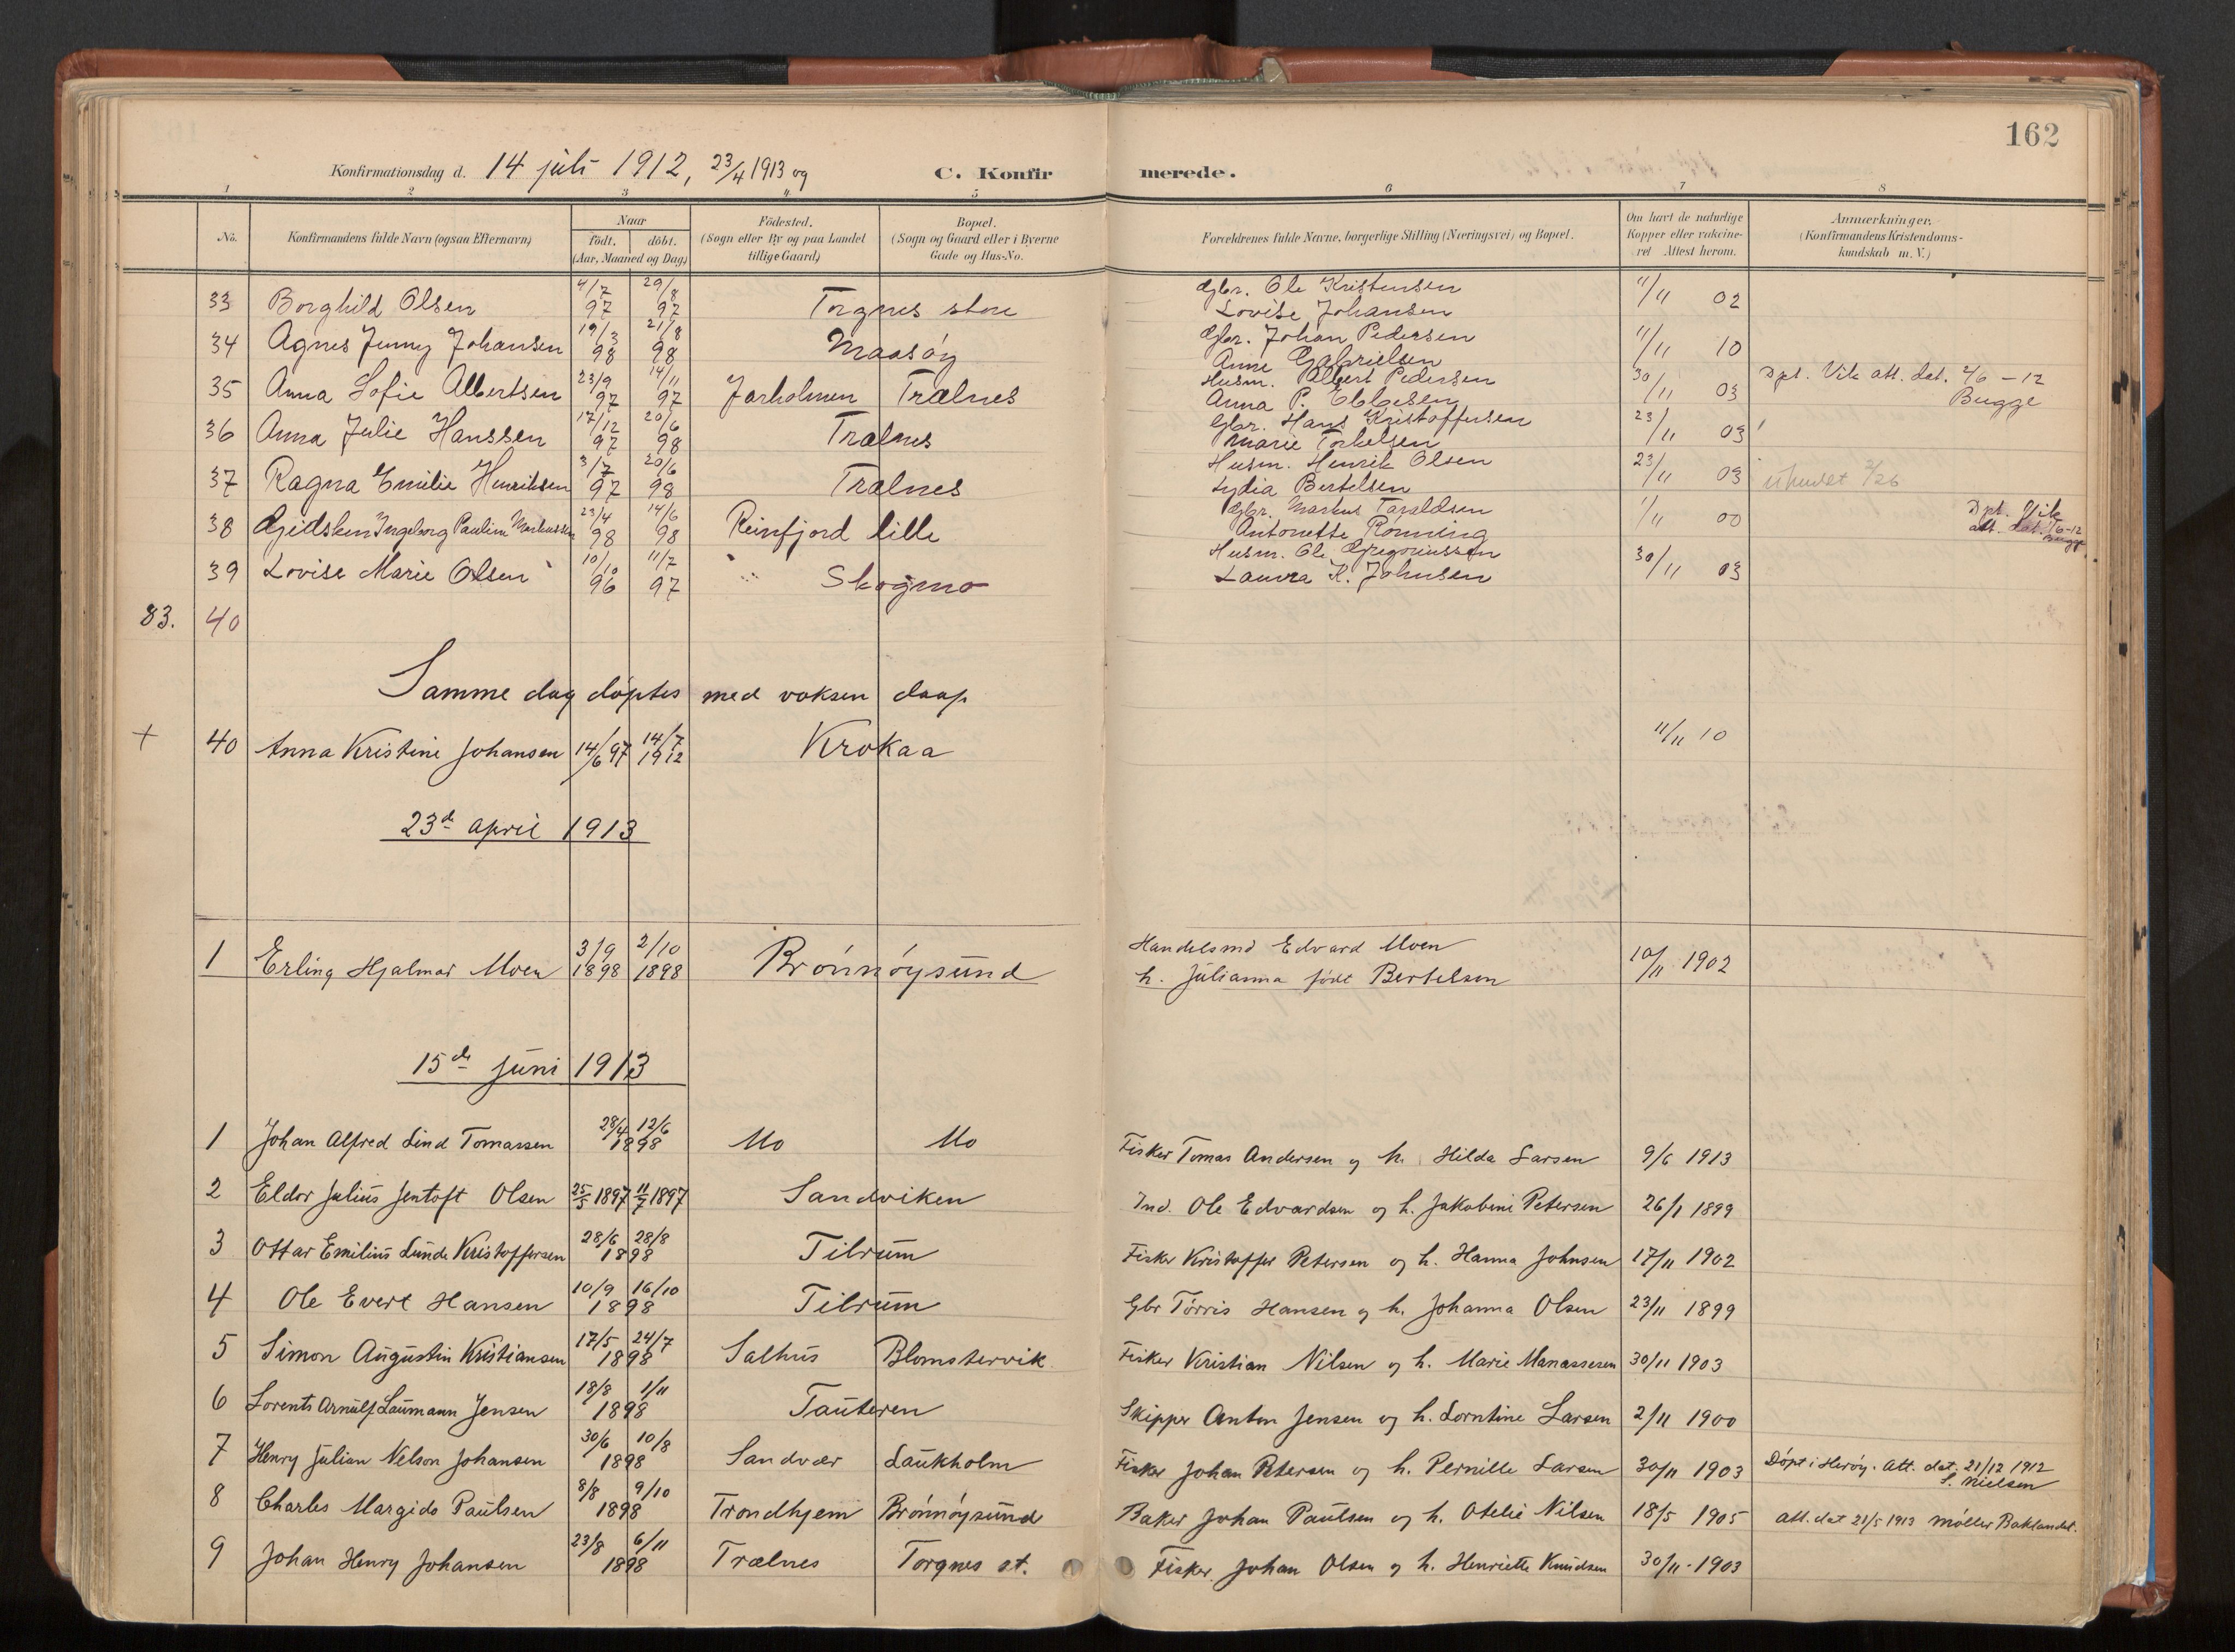 162
Konfirmationsdag d. 14 juli 1912, 23/4 1913 og C. Konfirmerede.
1 2 3 4 5 6 7 8
No. Konfirmandens fulde Navn (ogsaa Efternavn) Naar födt. döbt. (Aar, Maaned og Dag) Födested. (Sogn eller By og paa Landet tillige Gaard) Bopæl. (Sogn og Gaard eller i Byerne Gade og Hus-No. Forældrenes fulde Navne, borgerlige Stilling (Næringsvei) og Bopæl. Om havt de naturlige Kopper eller vakcineret Attest herom. Anmærkninger. (Konfirmandens Kristendomskundskab m. V.)
33 Borghild Olsen 4/7 97 29/8 97 Torgnes store Gbr. Ole Kristensen Lovise Johansen 11/11 02
34 Agnes Jenny Johansen 19/3 98 21/8 98 Maasøy Gbr. Johan Pedersen Anne Gabrielsen 11/11 10
35 Anna Sofie Albertsen 23/9 97 14/11 97 Jarholmen Trælnes Husm. Albert Pedersen Anna P. Ebbesen 30/11 03 Døpt. Vik att. dat. 2/6 - 12 Bugge
36 Anna Julie Hanssen 17/12 97 20/6 98 Trælnes Gbr. Hans Kristoffersen Marie Torkelsen 23/11 03
37 Ragna Emilie Henriksen 3/7 97 20/6 98 Trælnes Husm. Henrik Olsen Lydia Bertelsen 23/11 03
38 Gidsken Ingeborg Pauline Markussen 23/4 98 14/6 98 Reinfjord lille Gbr. Markus Taraldsen Antonette Rønning 1/11 00 Døpt. Vik att. dat. 2/6-12 Bugge
39 Lovise Marie Olsen 10/10 96 11/7 97 " Skogmo Husm. Ole Gregoriussen Laura K. Johnsen 30/11 03
83. 40
Samme dag døptes med voksen daap
+ 40 Anna Kristine Johansen 14/6 97 14/7 1912 Krokaa 11/11 10
23de april 1913
1 Erling Hjalmar Moen 3/9 1898 2/10 1898 Brønnøysund Handelsmd Edvard Moen h. Julianna født Bertelsen 10/11 1902
15de juni 1913
1 Johan Alfred Lind Tomassen 28/4 12/6 1898 Mo Mo Fisker Tomas Andersen og h. Hilda Larsen 9/6 1913
2 Eldor Julius Jentoft Olsen 25/5 1897 11/7 1897 Sandviken Ind. Ole Edvardsen og h. Jakobine Petersen 26/1 1899
3 Ottar Emilius Lunde Kristoffersen 28/6 28/8 1898 Tilrum Fisker Kristoffer Petersen og h. Hanna Johnsen 17/11 1902
4 Ole Evert Hansen 10/9 16/10 1898 Tilrum Gbr Tørris Hansen og h. Johanna Olsen 23/11 1899
5 Simon Augustin Kristiansen 17/5 24/7 1898 Salhus Blomstervik Fisker Kristian Nilsen og h. Marie Manassesen 30/11 1903
6 Lorents Arnulf Laumann Jensen 18/8 1/11 1898 Tauteren Skipper Anton Jensen og h. Lorntine Larsen 2/11 1900
7 Henry Julian Nelson Johansen 30/6 10/8 1898 Sandvær Laukholm Fisker Johan Petersen og h. Pernille Larsen 30/11 1903 Døpt i Herøy. Att. dat. 21/12 1912 S. Nielsen
8 Charles Margido Paulsen 8/8 9/10 1898 Trondhjem Brønnøysund Baker Johan Paulsen og h. Otelie Nilsen 18/5 1905 Att. dat 21/5 1913 Møller Baklandet.
9 Johan Henry Johansen 23/8 6/11 1898 Trælnes Torgnes st. Fisker Johan Olsen og h. Henriette Knudsen 30/11-1903